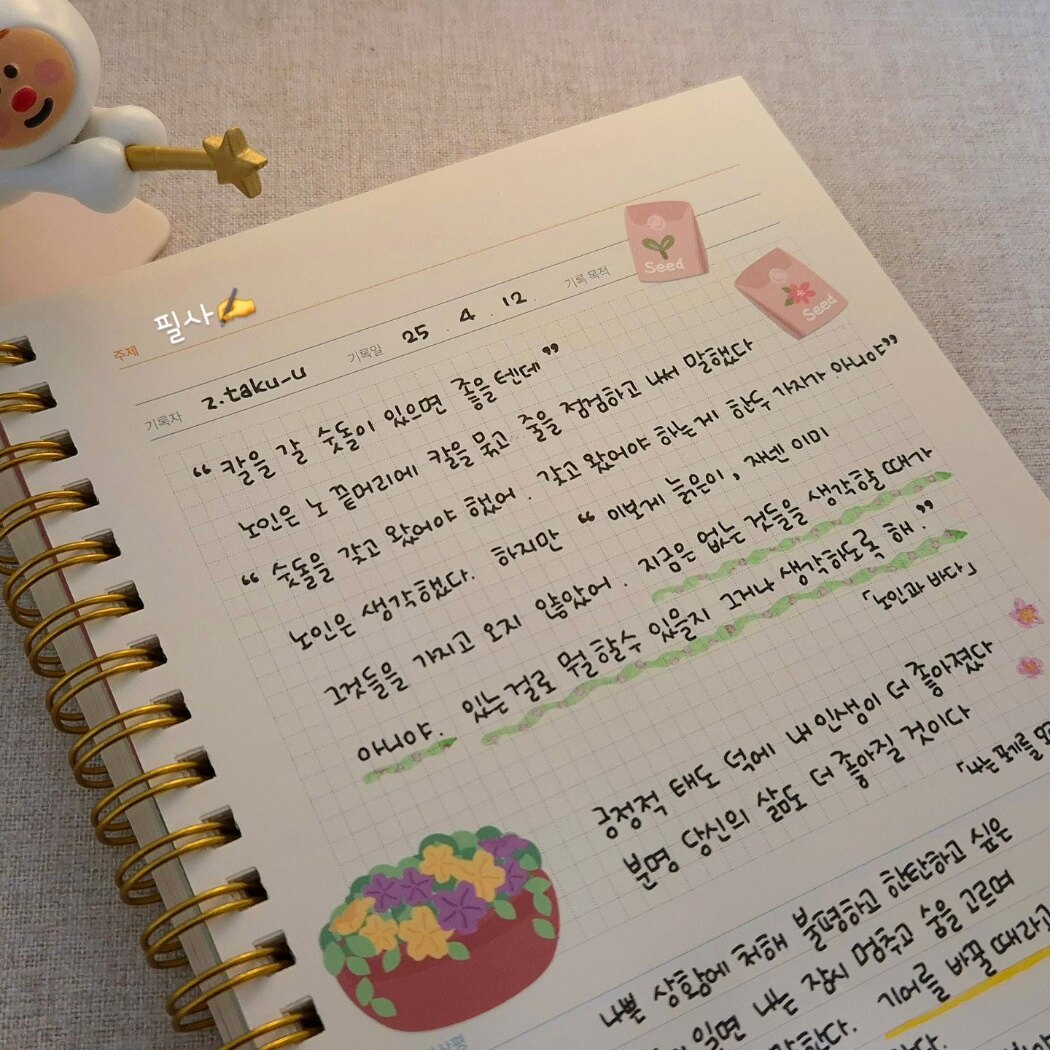 주제 필사✍️
기록자 z.taku_u 기록일 25 . 4 . 12. 기록 목적
Seed
Seed
“ 칼을 갈 숫돌이 있으면 좋을텐데 ”
노인은 노 끝머리에 칼을 묶고 줄을 점검하고 나서 말했다
“ 숫돌을 갖고 왔어야 했어 . 갖고 왔어야 하는게 한두 가지가 아니야”
노인은 생각했다. 하지만 “ 이보게 늙은이 , 자넨 이미
그것들을 가지고 오지 않았어 . 지금은 없는 것들을 생각할 때가
아니야. 있는걸로 뭘 할수 있을지 그거나 생각하도록 해.”
「노인과 바다」
긍정적 태도 덕에 내 인생이 더 좋아졌다
분명 당신의 삶도 더 좋아질 것이다
「나는
나쁜 상황에 처해 불평하고 한탄하고 싶은
일면 나는 잠시 멈추고 숨을 고르며
말한다. 기어를 바꿀 때라고